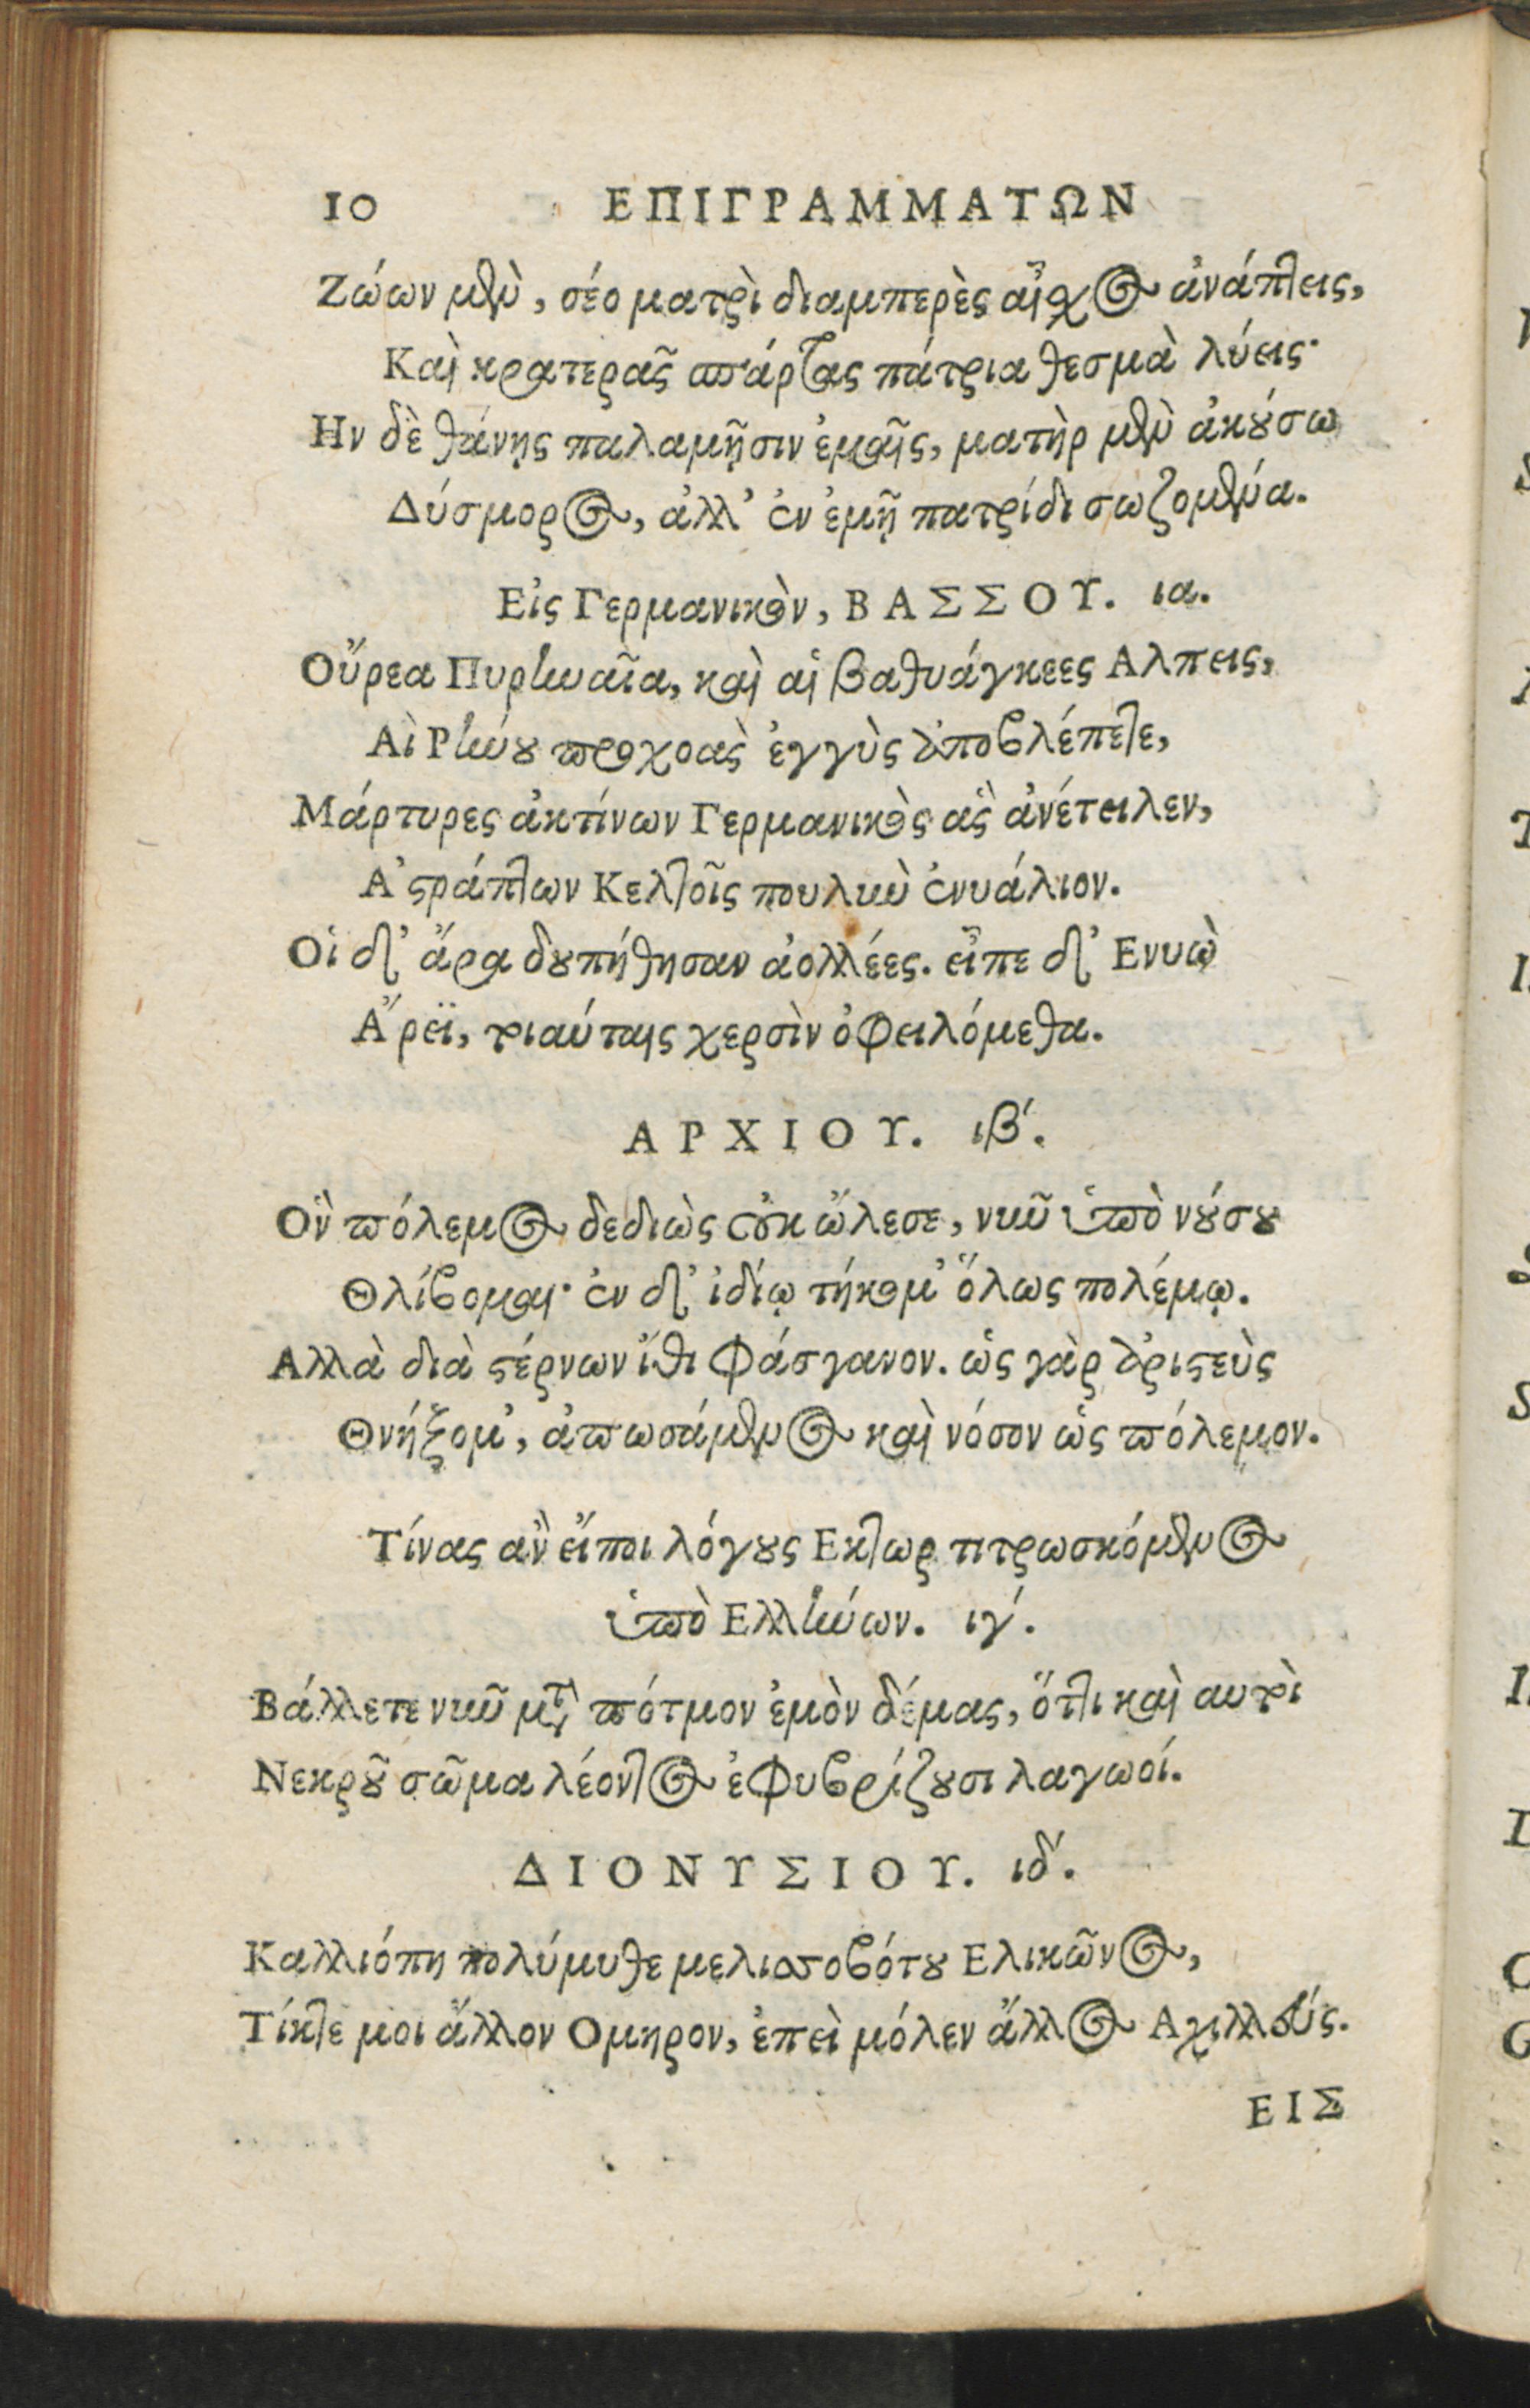 10 ΕΠΙΓΡΑΜΜΑΤΩΝ
Ζώων μὲν, σέο ματρὶ διαμπερὲς αἶσχος ἀνάπτεις,
Καὶ κρατερᾶς σπάρτας πάτρια θεσμὰ λύεις·
Ην δὲ θάνῃς παλαμῇσιν ἐμαῖς, ματὴρ μὲν ἀκούσω
Δύσμορος, ἀλλ' ἐν ἐμῇ πατρίδι σωζομένα.
Εἰς Γερμανικὸν, ΒΑΣΣΟΥ. ια.
Οὔρεα Πυρηναῖα, καὶ αἱ βαθυάγκεες Αλπεις,
Αἱ Ρήνου προχοὰς ἐγγὺς ἀποβλέπετε,
Μάρτυρες ἀκτίνων Γερμανικὸς ἃς ἀνέτειλεν,
Α'στράπτων Κελτοῖς πουλὺν ἐνυάλιον.
Οἱ δ' ἄρα δουπήθησαν ἀολλέες. εἶπε δ' Ενυὼ
Ἄρεϊ, τοιαύταις χερσὶν ὀφειλόμεθα.
ΑΡΧΙΟΥ. ιβ'.
Ὃν πόλεμος δεδιὼς οὐκ ὤλεσε, νῦν ὑπὸ νούσου
Θλίβομαι· ἐν δ' ἰδίῳ τήκομ' ὅλως πολέμῳ.
Αλλὰ διὰ στέρνων ἴθι φάσγανον. ὡς γὰρ ἀριστεὺς
Θνήξομ', ἀπωσάμενος καὶ νόσον ὡς πόλεμον.
Τίνας ἂν εἴποι λόγους Εκτωρ τιτρωσκόμενος
ὑπὸ Ελλήνων. ιγ'.
Βάλλετε νῦν μετὰ πότμον ἐμὸν δέμας, ὅττι καὶ αυτοὶ
Νεκροῦ σῶμα λέοντος ἐφυβρίζουσι λαγωοί.
ΔΙΟΝΥΣΙΟΥ. ιδ'.
Καλλιόπη πολύμυθε μελισσοβότου Ελικῶνος,
Τίκτε μοι ἄλλον Ομηρον, ἐπεὶ μόλεν ἄλλος Αχιλλεύς.
ΕΙΣ